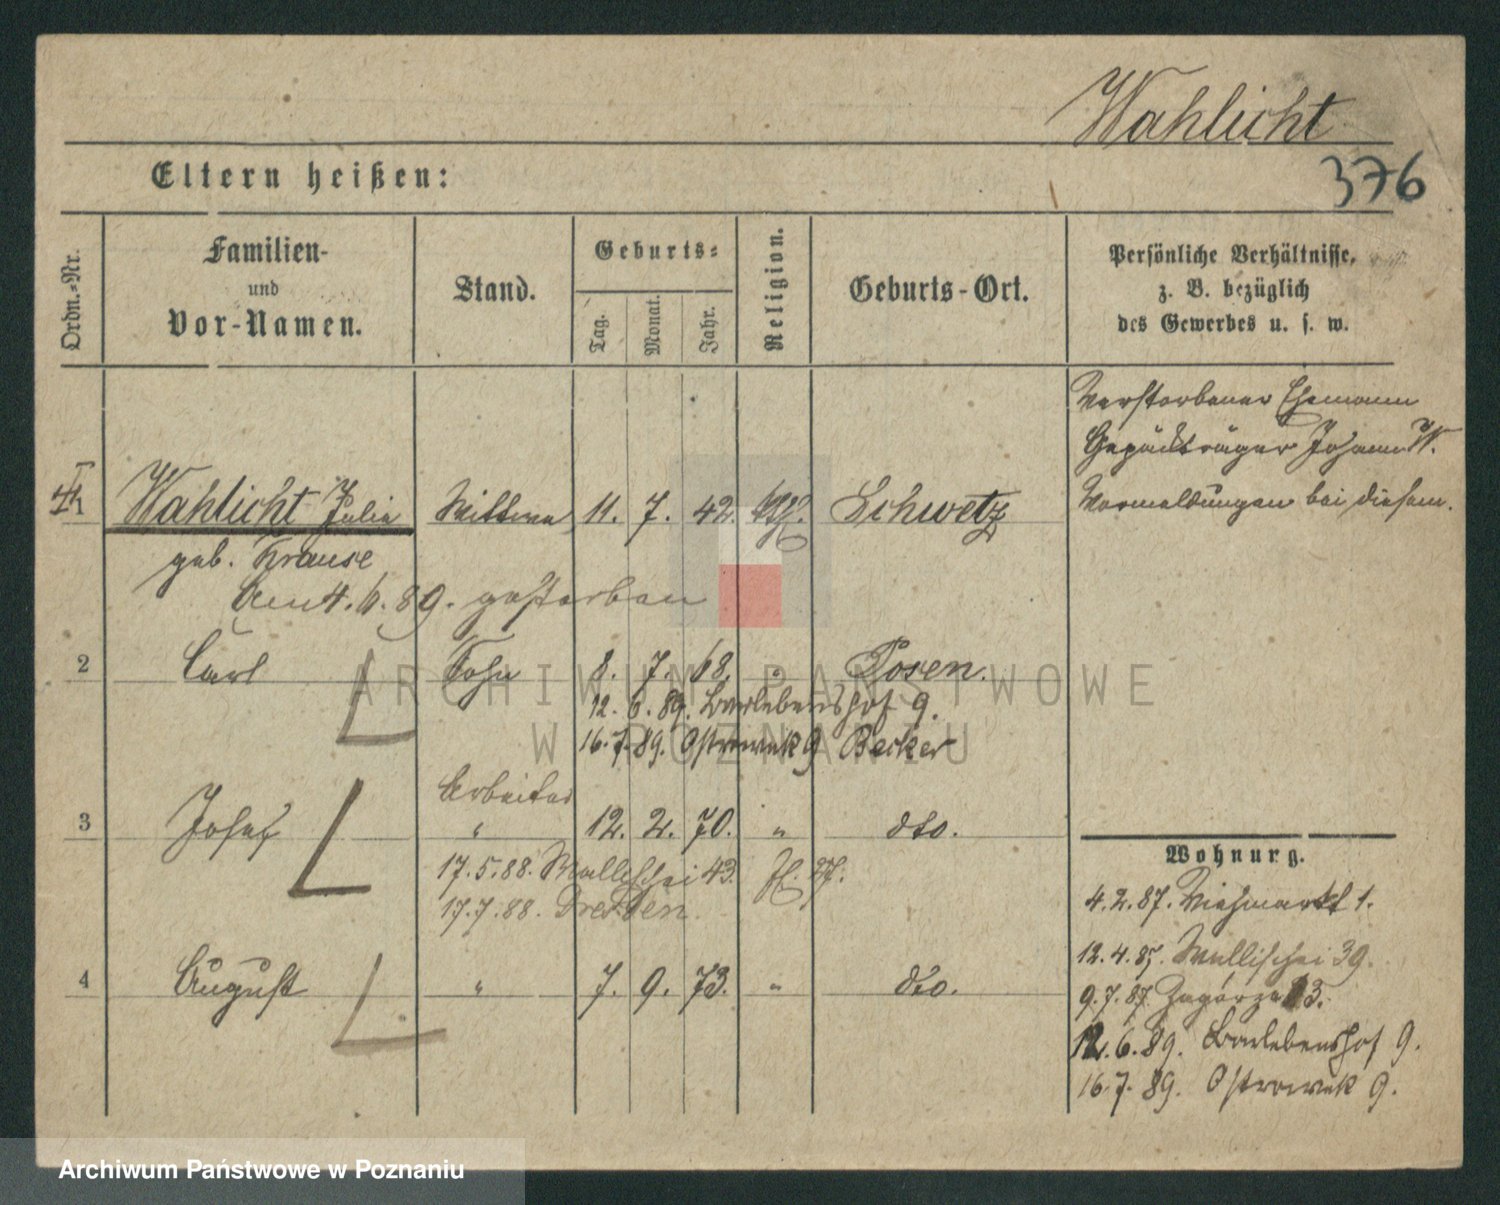 Wahlicht
376
Eltern heißen:
Ordn.-Nr.
Familien-
und
Vor-Namen.
Stand.
Geburts-
Tag.
Monat.
Jahr.
Religion.
Geburts-Ort.
Persönliche Verhältnisse,
z. B. bezüglich
des Gewerbes u. s. w.
Verstorbener Ehemann
Gepäckträger Johann W.
Vormeldungen bei diesem.
Wahlicht Julie Wittwe 11. 7. 42. Schwetz
geb. Krause
Am 4. 6. 89. gestorben
2 Carl Sohn 8. 7. 68. " Posen.
12. 6. 89. Berlebenshof 9.
16. 7. 89. Ostrowek 9 Becker
Arbeiter
3 Josef " 12. 2. 70. " dto.
17. 5. 88. Wallischei 43.
17. 7. 88. Dresden.
4 August " 7. 9. 73. " dto.
Wohnung.
4. 2. 87. Viehmarkt 1.
12. 4. 87. Wallischei 39.
9. 7. 87. Zagorze 13.
12. 6. 89. Berlebenshof 9.
16. 7. 89. Ostrowek 9.
ARCHIWUM PAŃSTWOWE
W POZNANIU
Archiwum Państwowe w Poznaniu